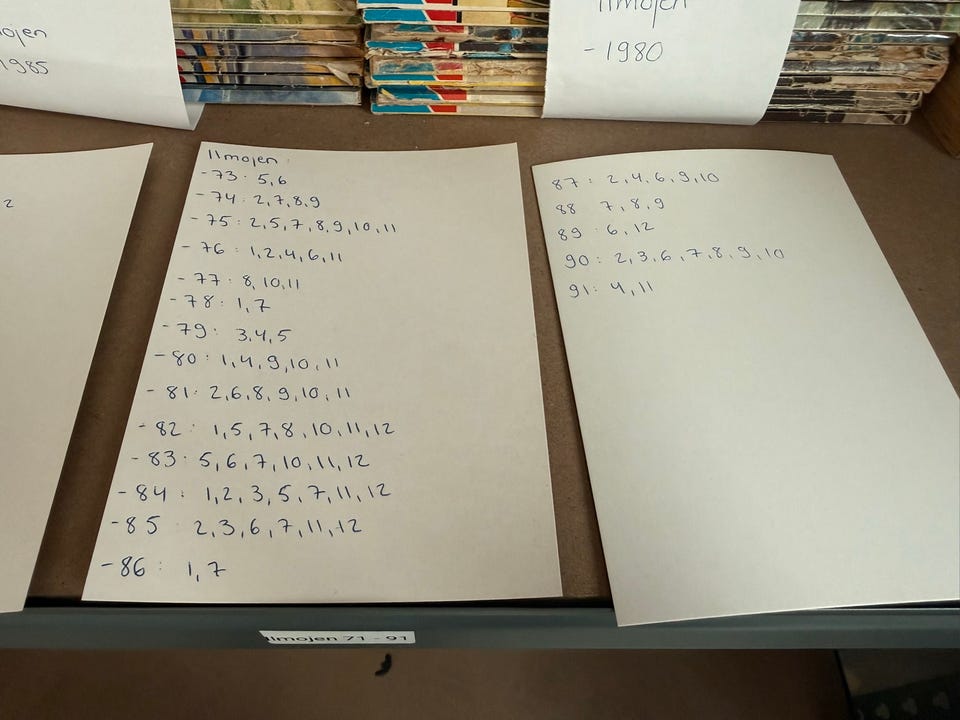 1985
- 1980
2
Ilmojen :
- 73 : 5, 6
- 74 : 2, 7, 8, 9
- 75 : 2, 5, 7, 8, 9, 10, 11
- 76 : 1, 2, 4, 6, 11
- 77 : 8, 10, 11
- 78 : 1, 7
- 79 : 3, 4, 5
- 80 : 1, 4, 9, 10, 11
- 81 : 2, 6, 8, 9, 10, 11
- 82 : 1, 5, 7, 8, 10, 11, 12
- 83 : 5, 6, 7, 10, 11, 12
- 84 : 1, 2, 3, 5, 7, 11, 12
- 85 : 2, 3, 6, 7, 11, 12
- 86 : 1, 7
87 : 2, 4, 6, 9, 10
88 7, 8, 9
89 : 6, 12
90 : 2, 3, 6, 7, 8, 9, 10
91 : 4, 11
Ilmojen 71 - 91